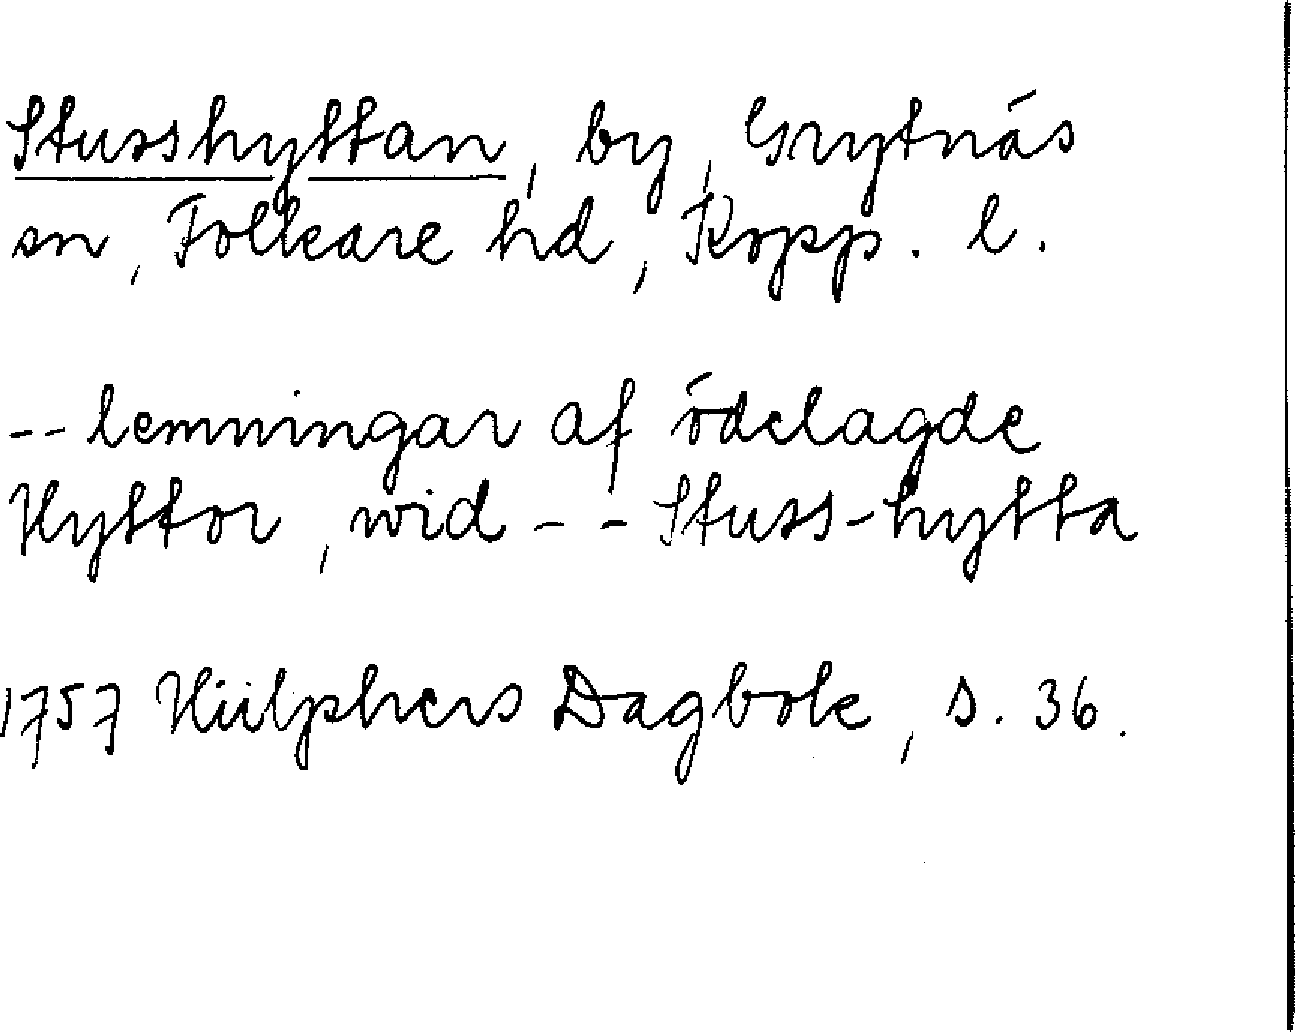 Stusshyttan, by, Grytnäs
sn, Folkare hd, Kopp. l.
-- lemningar af ödelagde
Hyttor, wid -- Stuss-hytta
1757 Hülphers Dagbok, s. 36.